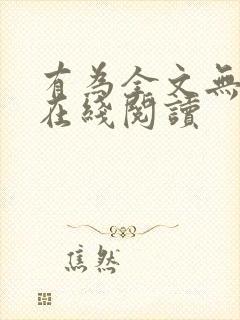 有為全文無
在綫閱讀
焦然